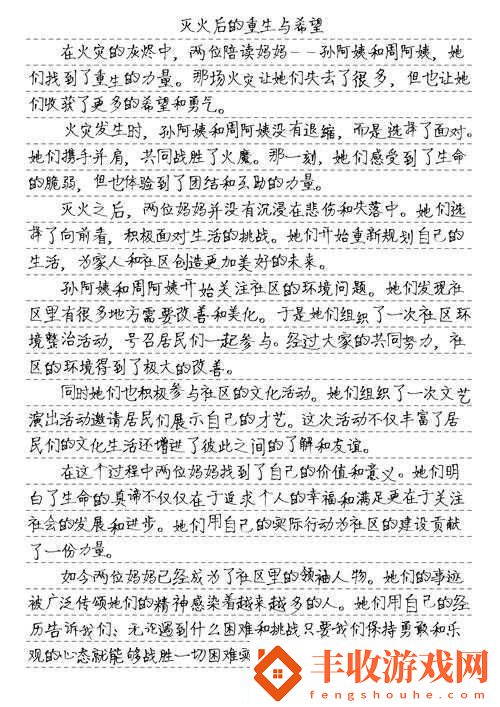 灭火后的重生与希望
在火灾的灰烬中，两位陪读妈妈--孙阿姨和周阿姨，她
们找到了重生的力量。那场火灾让她们失去了很多，但也让她
们收获了更多的希望和勇气。
火灾发生时，孙阿姨和周阿姨没有退缩，而是选择了面对。
她们携手并肩，共同战胜了火魔。那一刻，她们感受到了生命
的脆弱，但也体验到了团结和互助的力量。
灭火之后，两位妈妈并没有沉浸在悲伤和失落中。她们选
择了向前看，积极面对生活的挑战。她们开始重新规划自己的
生活，为家人和社区创造更加美好的未来。
孙阿姨和周阿姨开始关注社区的环境问题。她们发现社
区里有很多地方需要改善和美化。于是她们组织了一次社区环
境整治活动，号召居民们一起参与。经过大家的共同努力，社
区的环境得到了极大的改善。
同时她们也积极参与社区的文化活动。她们组织了一次文艺
演出活动邀请居民们展示自己的才艺。这次活动不仅丰富了居
民们的文化生活还增进了彼此之间的了解和友谊。
在这个过程中两位妈妈找到了自己的价值和意义。她们明
白了生命的真谛不仅仅在于追求个人的幸福和满足更在于关注
社会的发展和进步。她们用自己的实际行动为社区的建设贡献
了一份力量。
如今两位妈妈已经成为了社区里的领袖人物。她们的事迹
被广泛传颂她们的精神感染着越来越多的人。她们用自己的经
历告诉我们：无论遇到什么困难和挑战只要我们保持勇敢和乐
观的心态就能够战胜一切困难实
丰收游戏网
fengshouhe.com